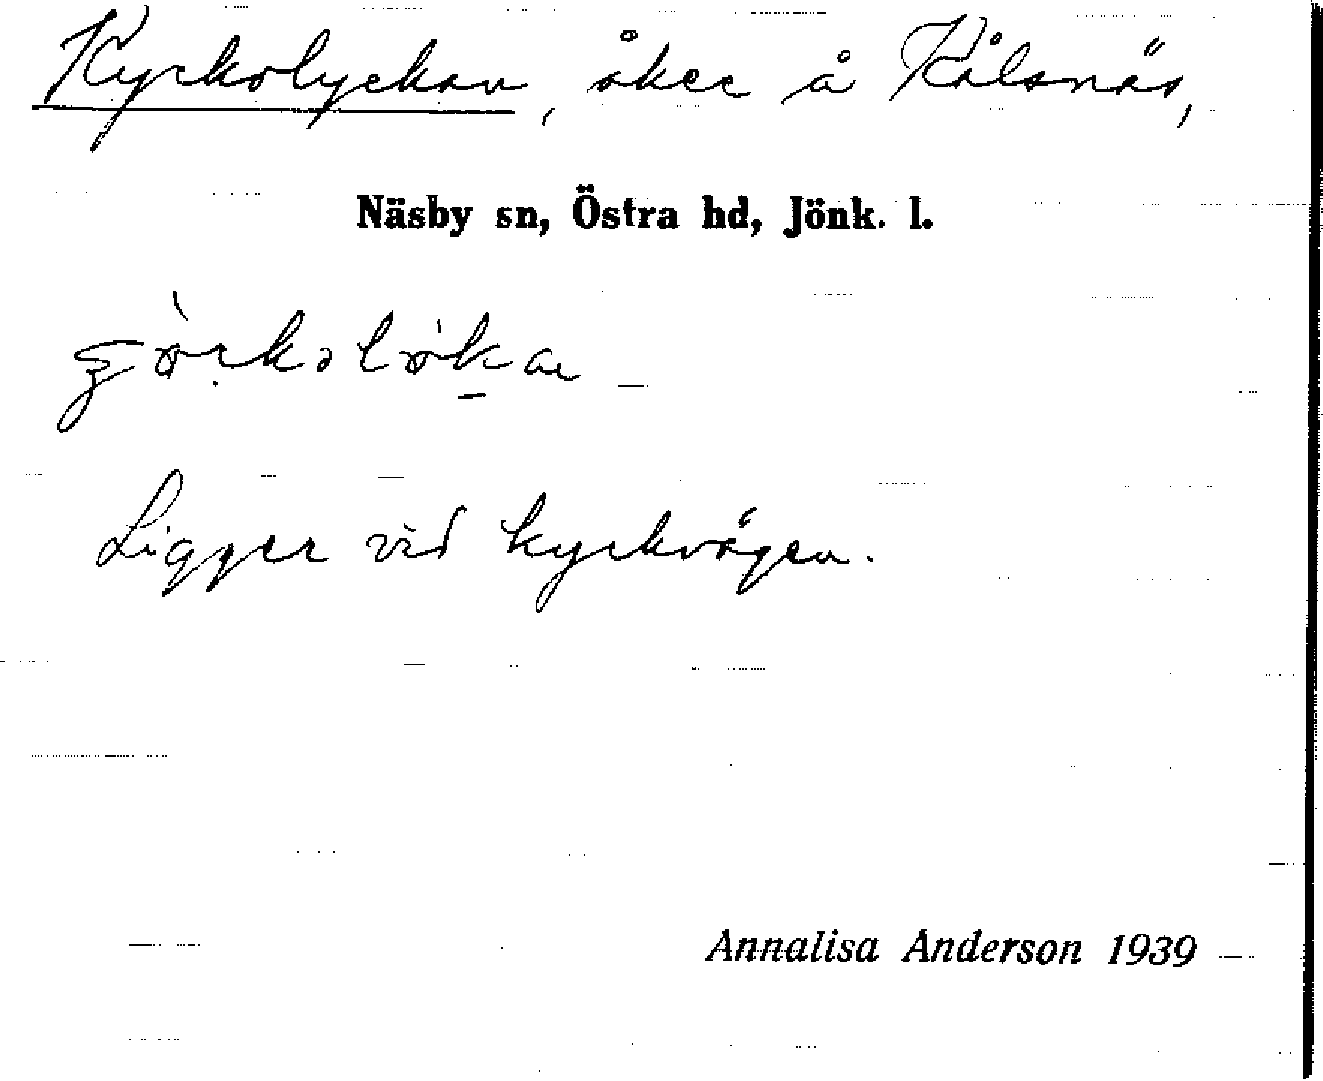 Kyrkolyckan, åker å Kålsnäs,
Näsby sn, Östra hd, Jönk. l.
Ligger vid kyrkvägen.
Annalisa Anderson 1939